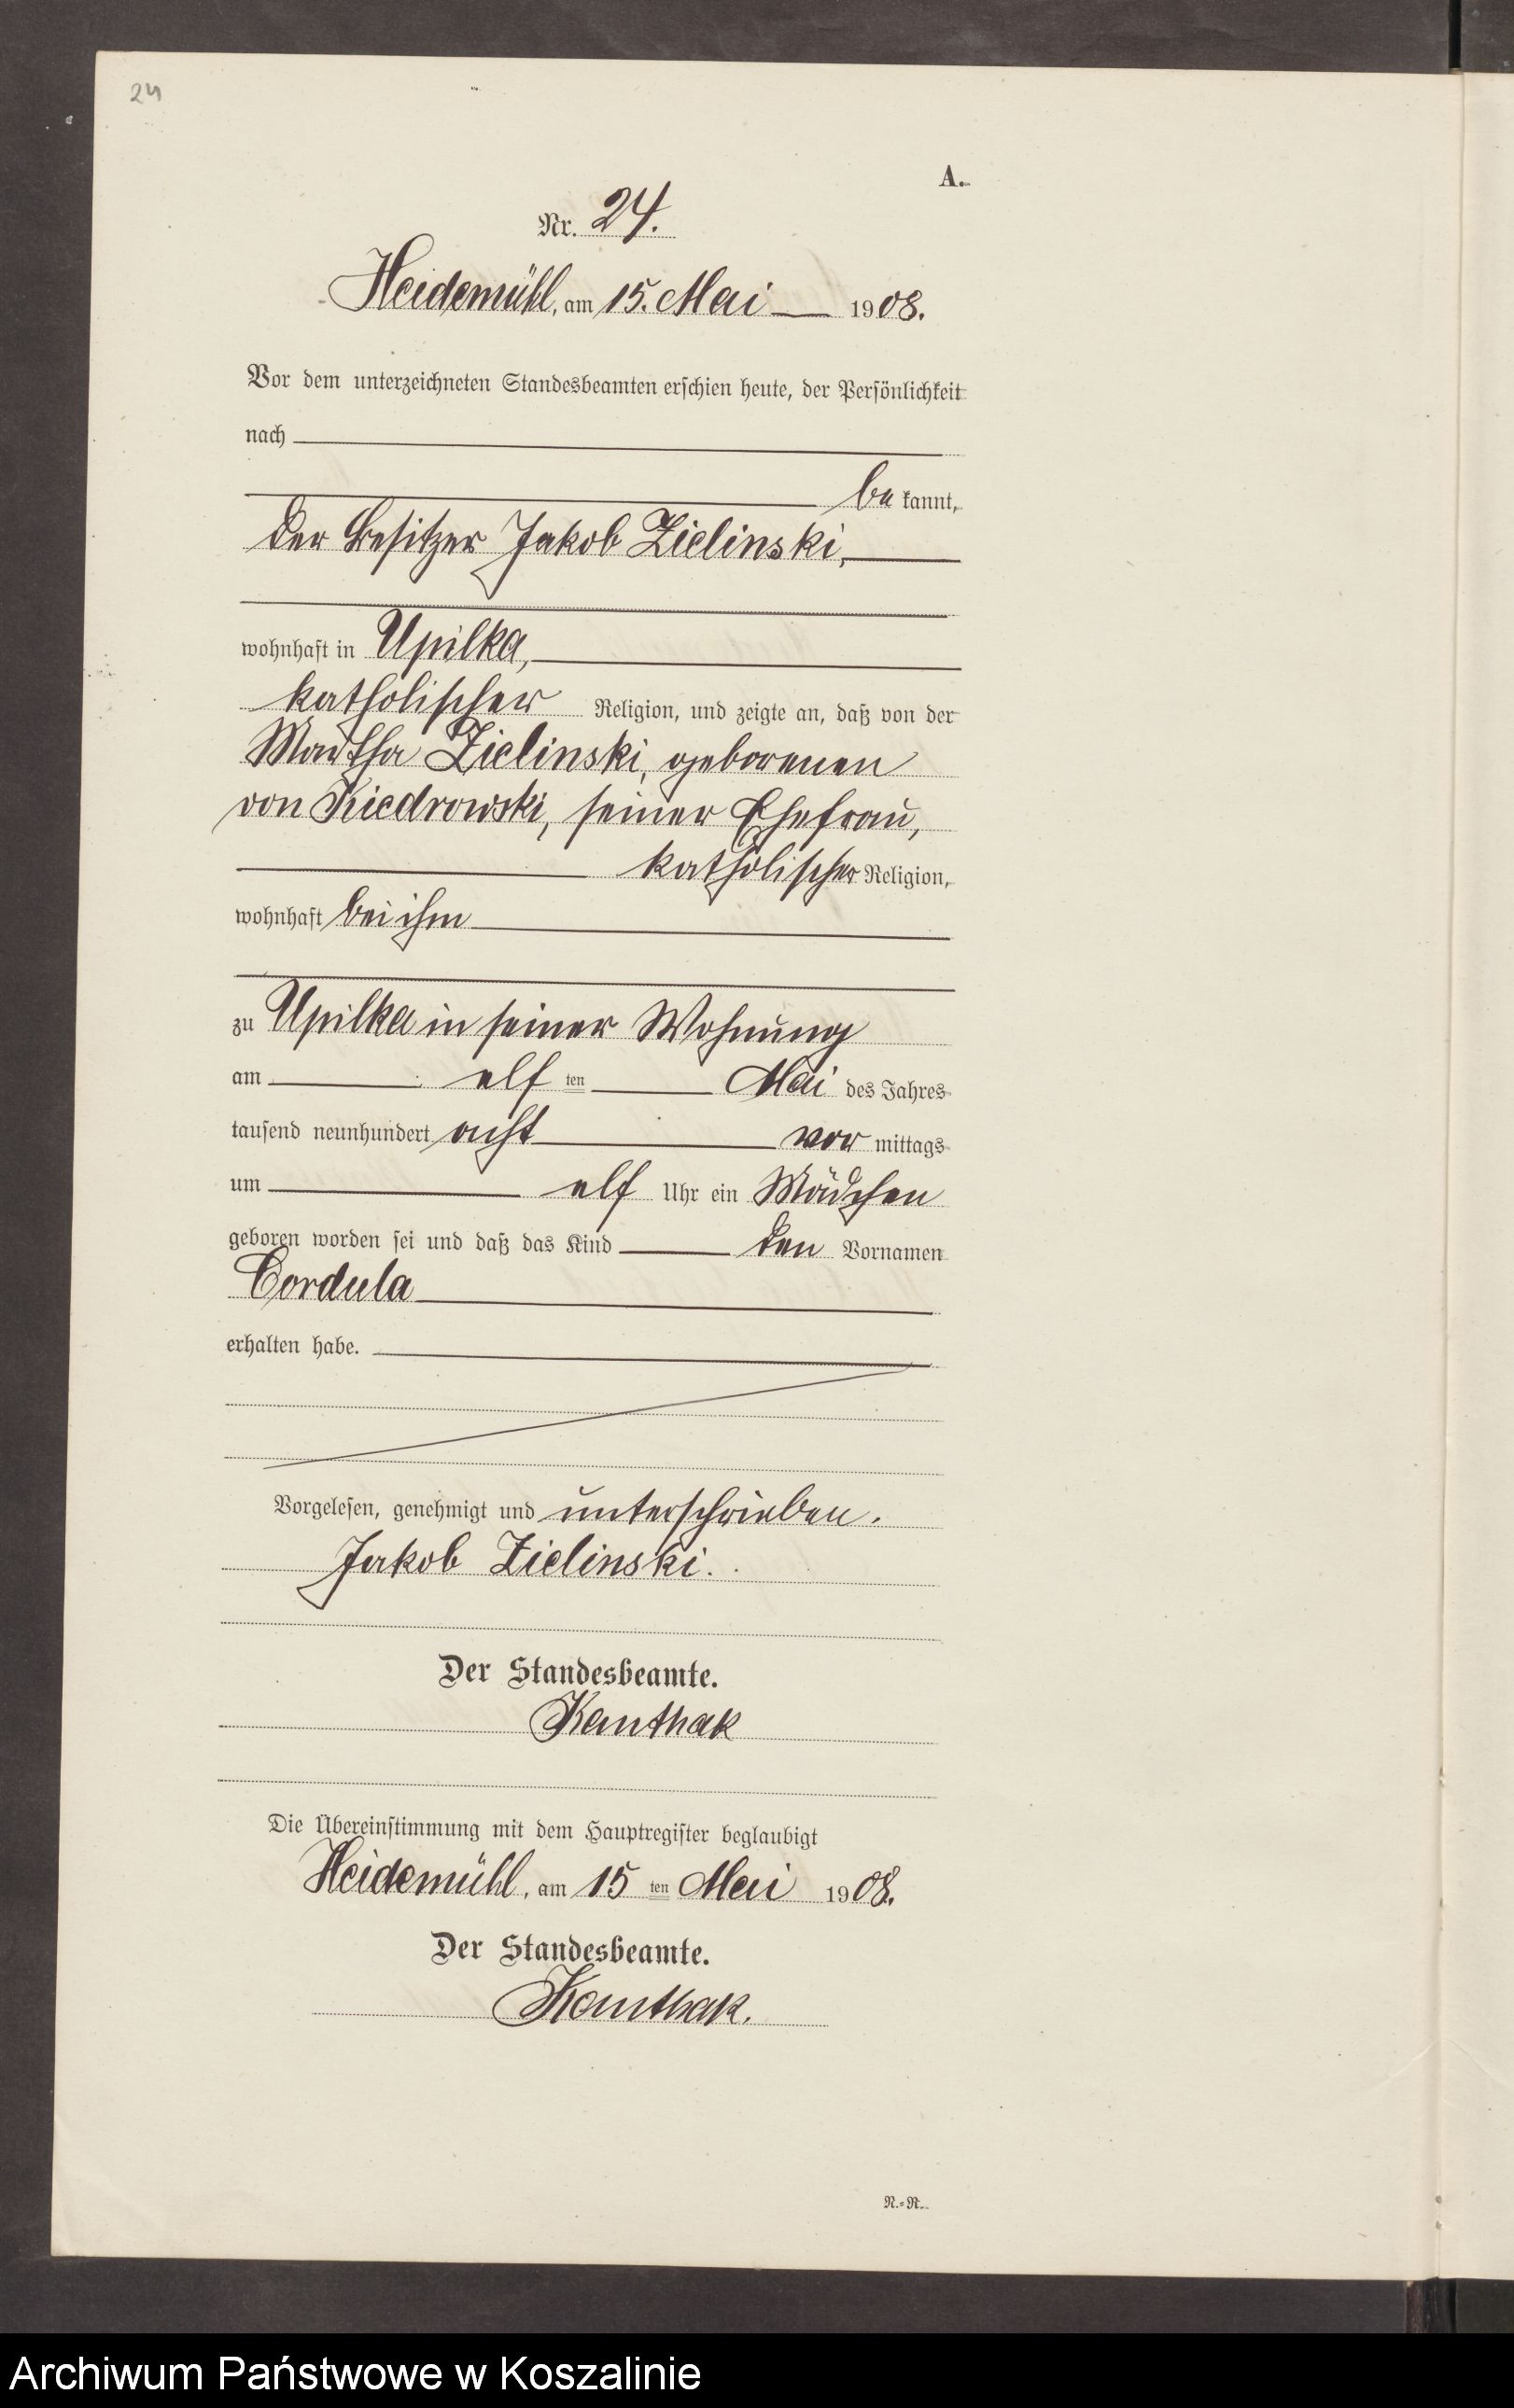 24
A.
Nr. 24.
Heidemühl, am 15. Mai 1908.
Vor dem unterzeichneten Standesbeamten erschien heute, der Persönlichkeit
nach
be kannt,
der Besitzer Jakob Zielinski,
wohnhaft in Upilka,
katholischer Religion, und zeigte an, daß von der
Martha Zielinski, geborenen
von Kiedrowski, seiner Ehefrau,
katholischer Religion,
wohnhaft bei ihm
zu Upilka in seiner Wohnung
am elf ten Mai des Jahres
tausend neunhundert acht vor mittags
um elf Uhr ein Mädchen
geboren worden sei und daß das Kind den Vornamen
Cordula
erhalten habe.
Vorgelesen, genehmigt und unterschrieben.
Jakob Zielinski.
Der Standesbeamte.
Kanthak
Die Übereinstimmung mit dem Hauptregister beglaubigt
Heidemühl, am 15 ten Mai 1908.
Der Standesbeamte.
Kanthak.
N.=R.
Archiwum Państwowe w Koszalinie